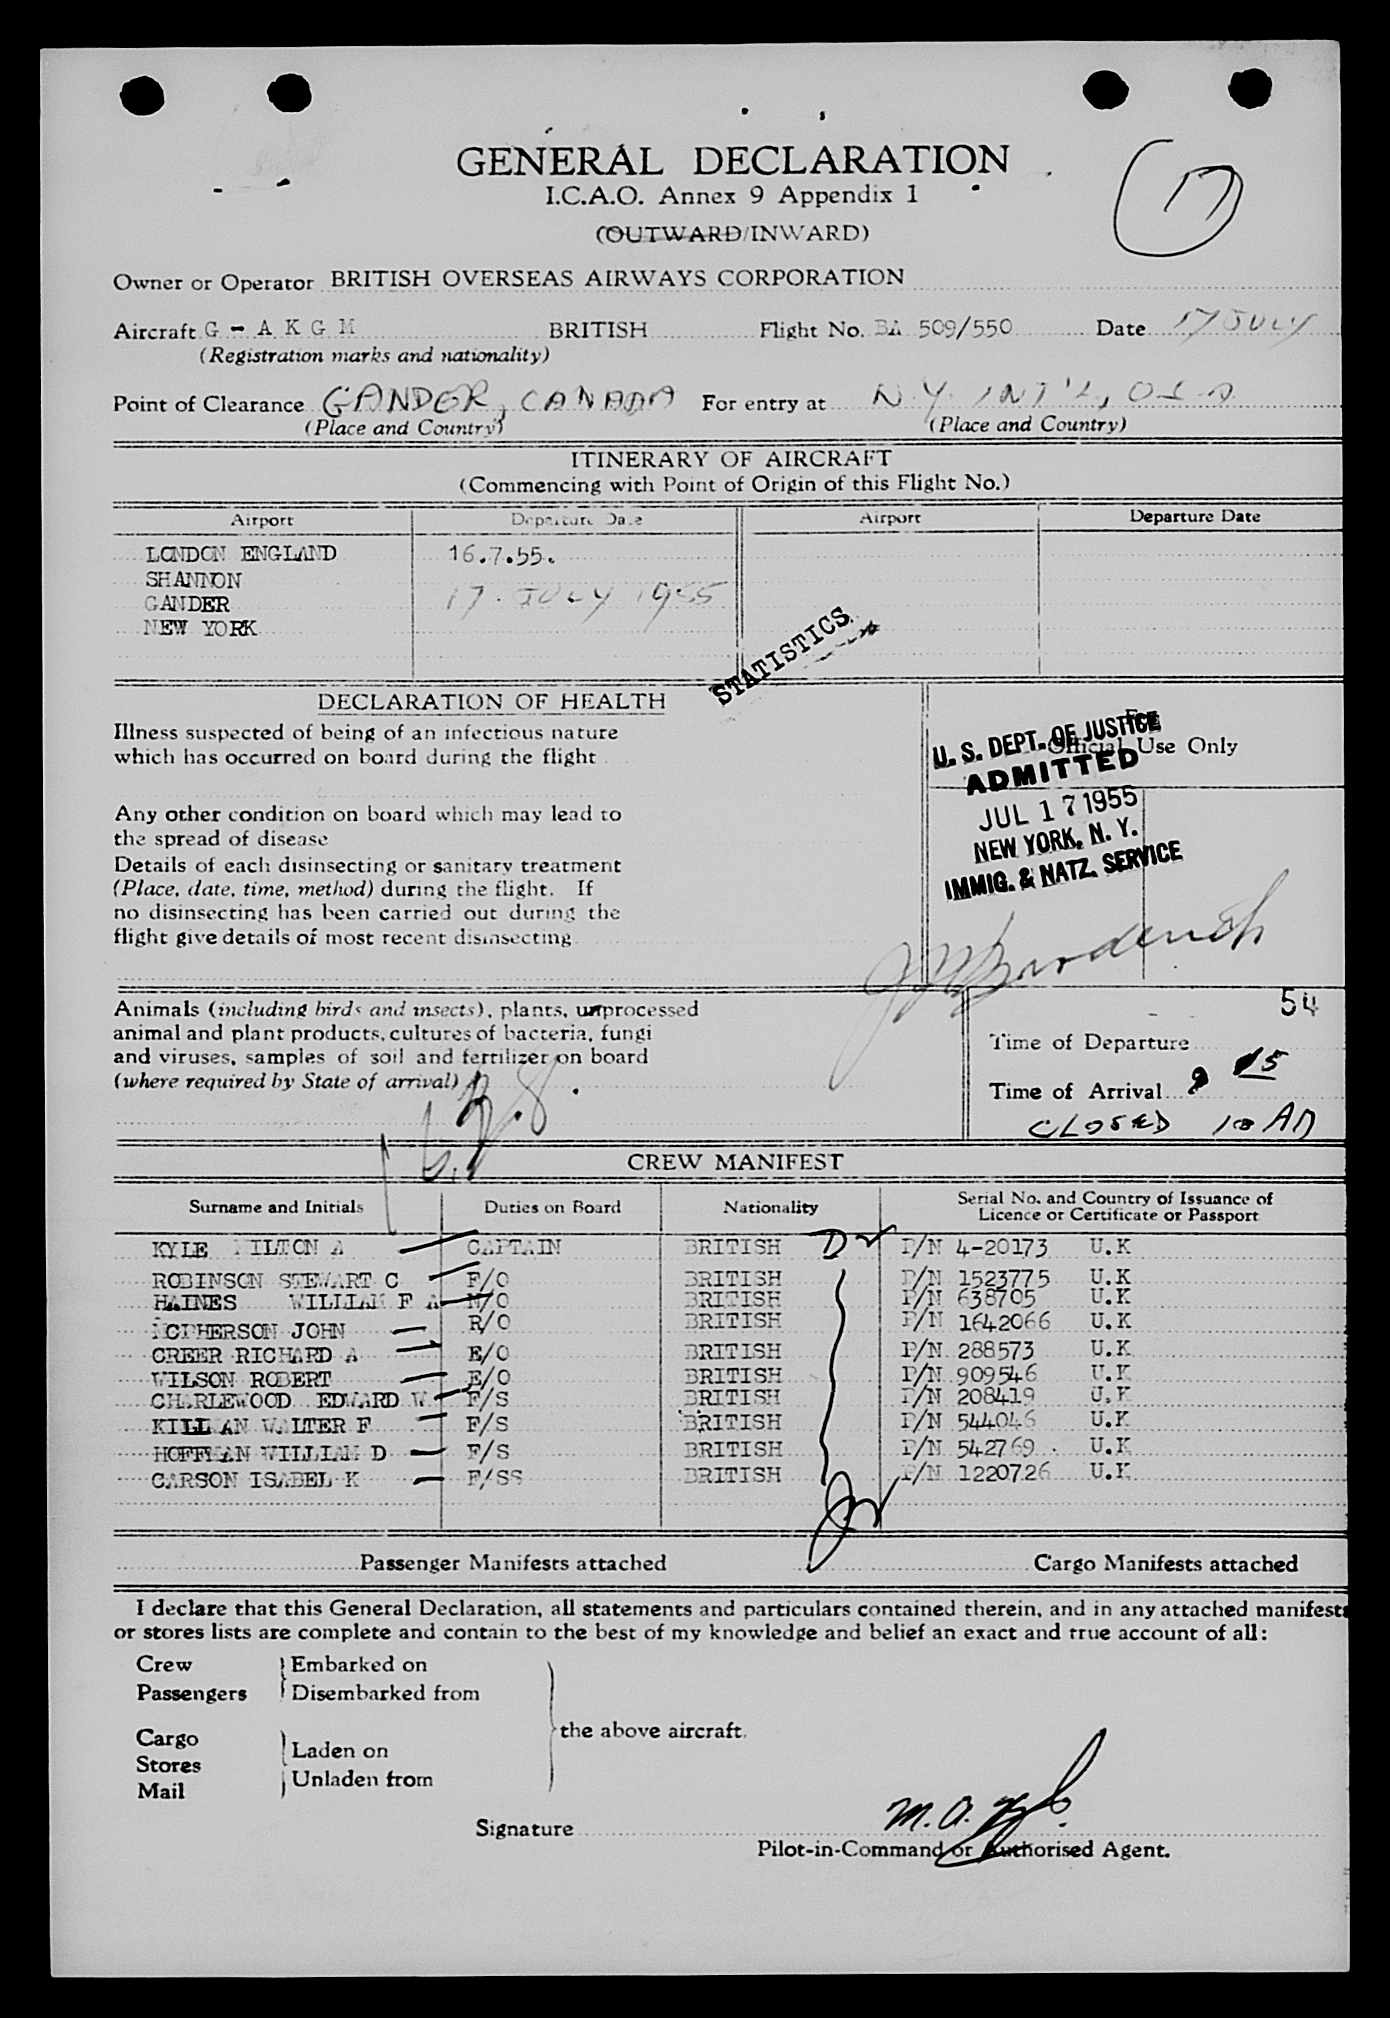 GENERAL DECLARATION
I.C.A.O. Annex 9 Appendix 1
(OUTWARD/INWARD)
17
Owner or Operator BRITISH OVERSEAS AIRWAYS CORPORATION
Aircraft G - A K G M BRITISH Flight No. BA 509/550 Date 17 JULY
(Registration marks and nationality)
Point of Clearance GANDER, CANADA For entry at N.Y. INT'L, USA
(Place and Country) (Place and Country)
ITINERARY OF AIRCRAFT
(Commencing with Point of Origin of this Flight No.)
Airport Departure Date Airport Departure Date
LONDON ENGLAND 16.7.55.
SHANNON
GANDER 17. JULY 1955
NEW YORK
STATISTICS
DECLARATION OF HEALTH
Illness suspected of being of an infectious nature
which has occurred on board during the flight
Any other condition on board which may lead to
the spread of disease
Details of each disinsecting or sanitary treatment
(Place, date, time, method) during the flight. If
no disinsecting has been carried out during the
flight give details of most recent disinsecting
For
Official Use Only
U. S. DEPT. OF JUSTICE
ADMITTED
JUL 17 1955
NEW YORK, N. Y.
IMMIG. & NATZ. SERVICE
Animals (including birds and insects), plants, unprocessed
animal and plant products, cultures of bacteria, fungi
and viruses, samples of soil and fertilizer on board
(where required by State of arrival)
54
Time of Departure
Time of Arrival 9 15
CLOSED 10 AM
CREW MANIFEST
Surname and Initials Duties on Board Nationality Serial No. and Country of Issuance of
Licence or Certificate or Passport
KYLE MILTON A CAPTAIN BRITISH P/N 4-20173 U.K
ROBINSON STEWART C F/O BRITISH P/N 1523775 U.K
HAINES WILLIAM F A N/O BRITISH P/N 638705 U.K
MCPHERSON JOHN R/O BRITISH P/N 1642066 U.K
GREER RICHARD A E/O BRITISH P/N 288573 U.K
WILSON ROBERT E/O BRITISH P/N 909546 U.K
CHARLEWOOD EDWARD W F/S BRITISH P/N 208419 U.K
KILLIAN WALTER F F/S BRITISH P/N 544046 U.K
HOFFMAN WILLIAM D F/S BRITISH P/N 542769 U.K
CARSON ISABEL K F/SS BRITISH P/N 1220726 U.K
Passenger Manifests attached Cargo Manifests attached
I declare that this General Declaration, all statements and particulars contained therein, and in any attached manifests
or stores lists are complete and contain to the best of my knowledge and belief an exact and true account of all:
Crew Embarked on
Passengers Disembarked from
the above aircraft.
Cargo
Stores Laden on
Mail Unladen from
Signature M. A. Kyle.
Pilot-in-Command or Authorised Agent.